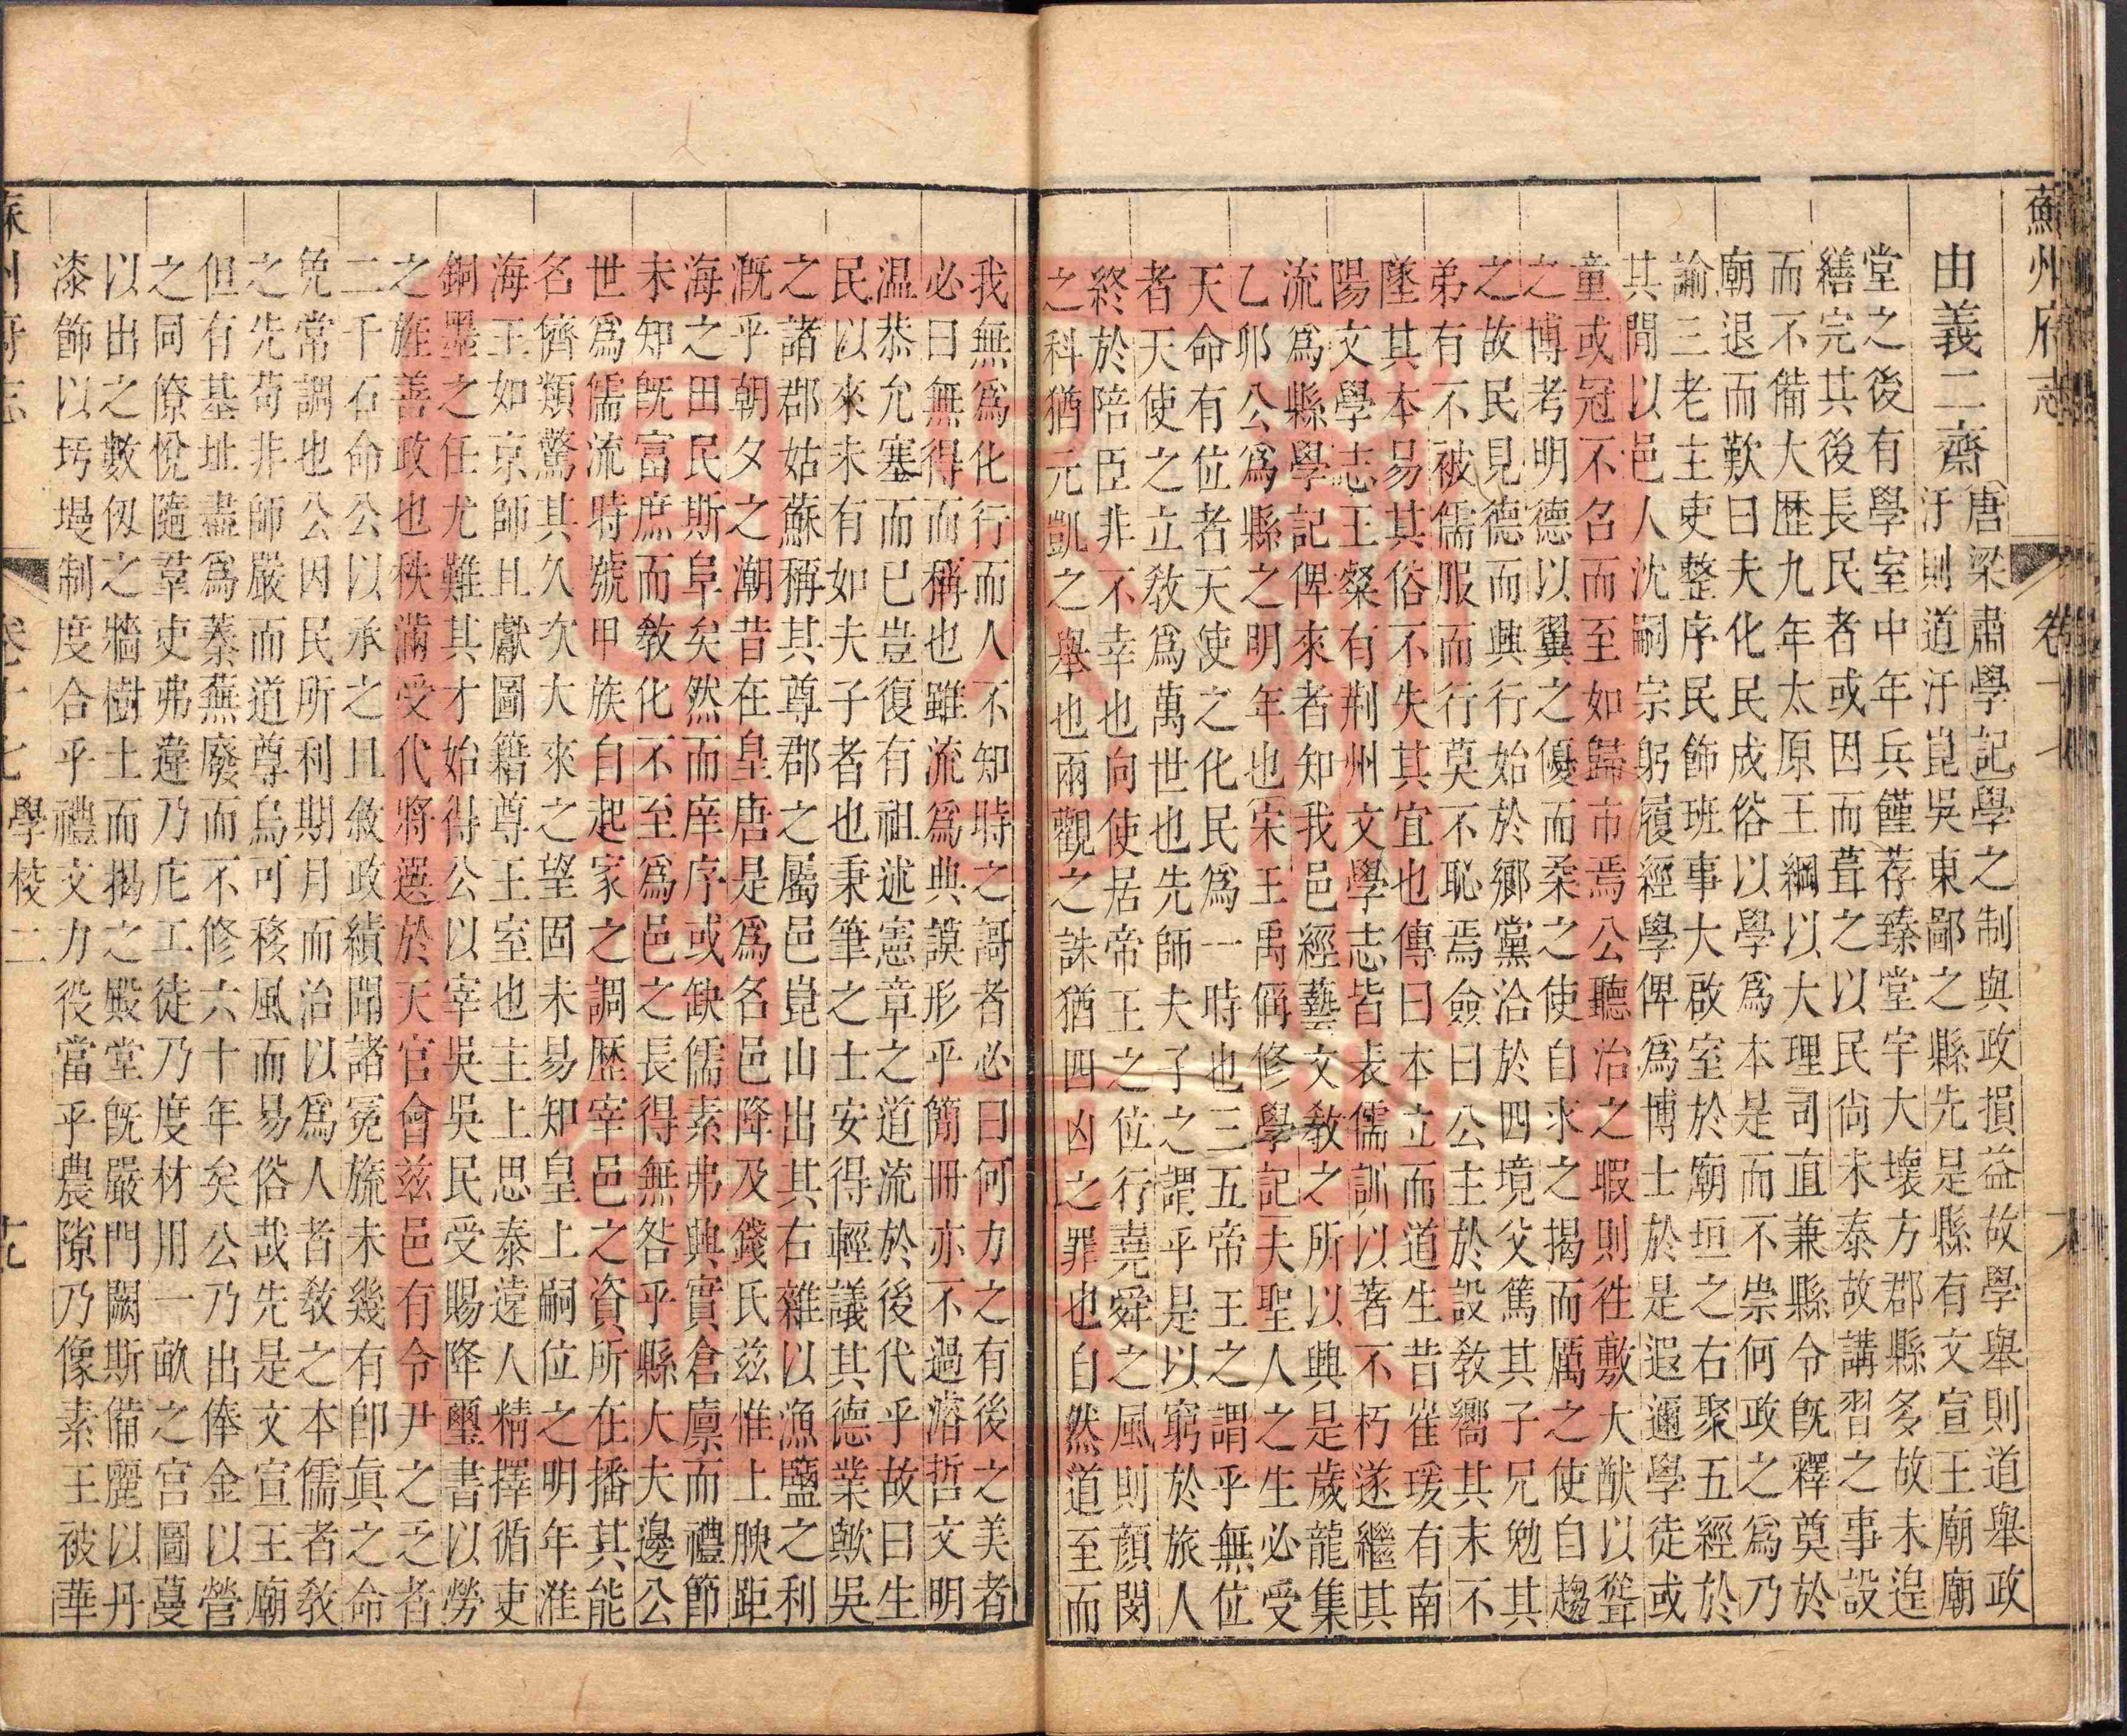 蘇州府志 卷十七
由義二齋
唐梁肅學記學之制與政損益故學舉則道舉政
汙則道汙崑吳東鄙之縣先是縣有文宣王廟廟
堂之後有學室中年兵饉荐臻堂宇大壞方郡縣多故未遑
繕完其後長民者或因而葺之以民尙未泰故講習之事設
而不備大歷九年太原王綱以大理司直兼縣令旣釋奠於
廟退而歎曰夫化民成俗以學爲本是而不崇何政之爲乃
諭三老主吏整序民飾班事大啟室於廟垣之右聚五經於
其閒以邑人沈嗣宗躬履經學俾爲博士於是遐邇學徒或
童或冠不召而至如歸市焉公聽治之暇則徃敷大猷以聳
之博考明德以翼之優而柔之使自求之揭而厲之使自趨
之故民見德而興行行始於鄉黨洽於四境父篤其子兄勉其
弟有不被儒服而行莫不恥焉僉曰公主於設敎嚮其末不
墜其本易其俗不失其宜也傳曰本立而道生昔崔瑗有南
陽文學志王粲有荆州文學志皆表儒訓以著不朽遂繼其
流爲縣學記俾來者知我邑經藝文敎之所以興是歲龍集
乙夘公爲縣之明年也宋王禹偁修學記夫聖人之生必受
天命有位者天使之化民爲一時也三五帝王之謂乎無位
者天使之立敎爲萬世也先師夫子之謂乎是以窮於旅人
終於陪臣非不幸也向使居帝王之位行堯舜之風則顔閔
之科猶元凱之舉也兩觀之誅猶四凶之罪也自然道至而
我無爲化行而人不知時之謌者必曰何力之有後之美者
必曰無得而稱也雖流爲典謨形乎簡冊亦不過濬哲文明
温恭允塞而已豈復有祖述憲章之道流於後代乎故曰生
民以來未有如夫子者也秉筆之士安得輕議其德業歟吳
之諸郡姑蘇稱其尊郡之屬邑崑山出其右雜以漁鹽之利
漑乎朝夕之潮昔在皇唐是爲名邑降及錢氏兹惟上腴距
海之田民斯阜矣然而庠序或缺儒素弗興實倉廩而禮節
未知旣富庶而敎化不至爲邑之長得無咎乎縣大夫邊公
世爲儒流時號甲族自起家之調歷宰邑之資所在播其能
名儕類驚其久次大來之望固未易知皇上嗣位之明年淮
海王如京師且獻圖籍尊王室也主上思泰遠人精擇循吏
銅墨之任尤難其才始得公以宰吳吳民受賜降璽書以勞
之旌善政也秩滿受代將選於天官會兹邑有令尹之乏者
二千石命公以承之且敘政績聞諸冕旒未幾有卽眞之命
免常調也公因民所利期月而治以爲人者敎之本儒者敎
之先苟非師嚴而道尊烏可移風而易俗哉先是文宣王廟
但有基址盡爲蓁蕪廢而不修六十年矣公乃出俸金以營
之同僚悅隨羣吏弗違乃庀工徒乃度材用一畝之宮圖蔓
以出之數仭之牆樹土而揭之殿堂旣嚴門闕斯備麗以丹
漆飾以圬墁制度合乎禮文力役當乎農隙乃像素王被華
蘇州府志 卷十七 學校二